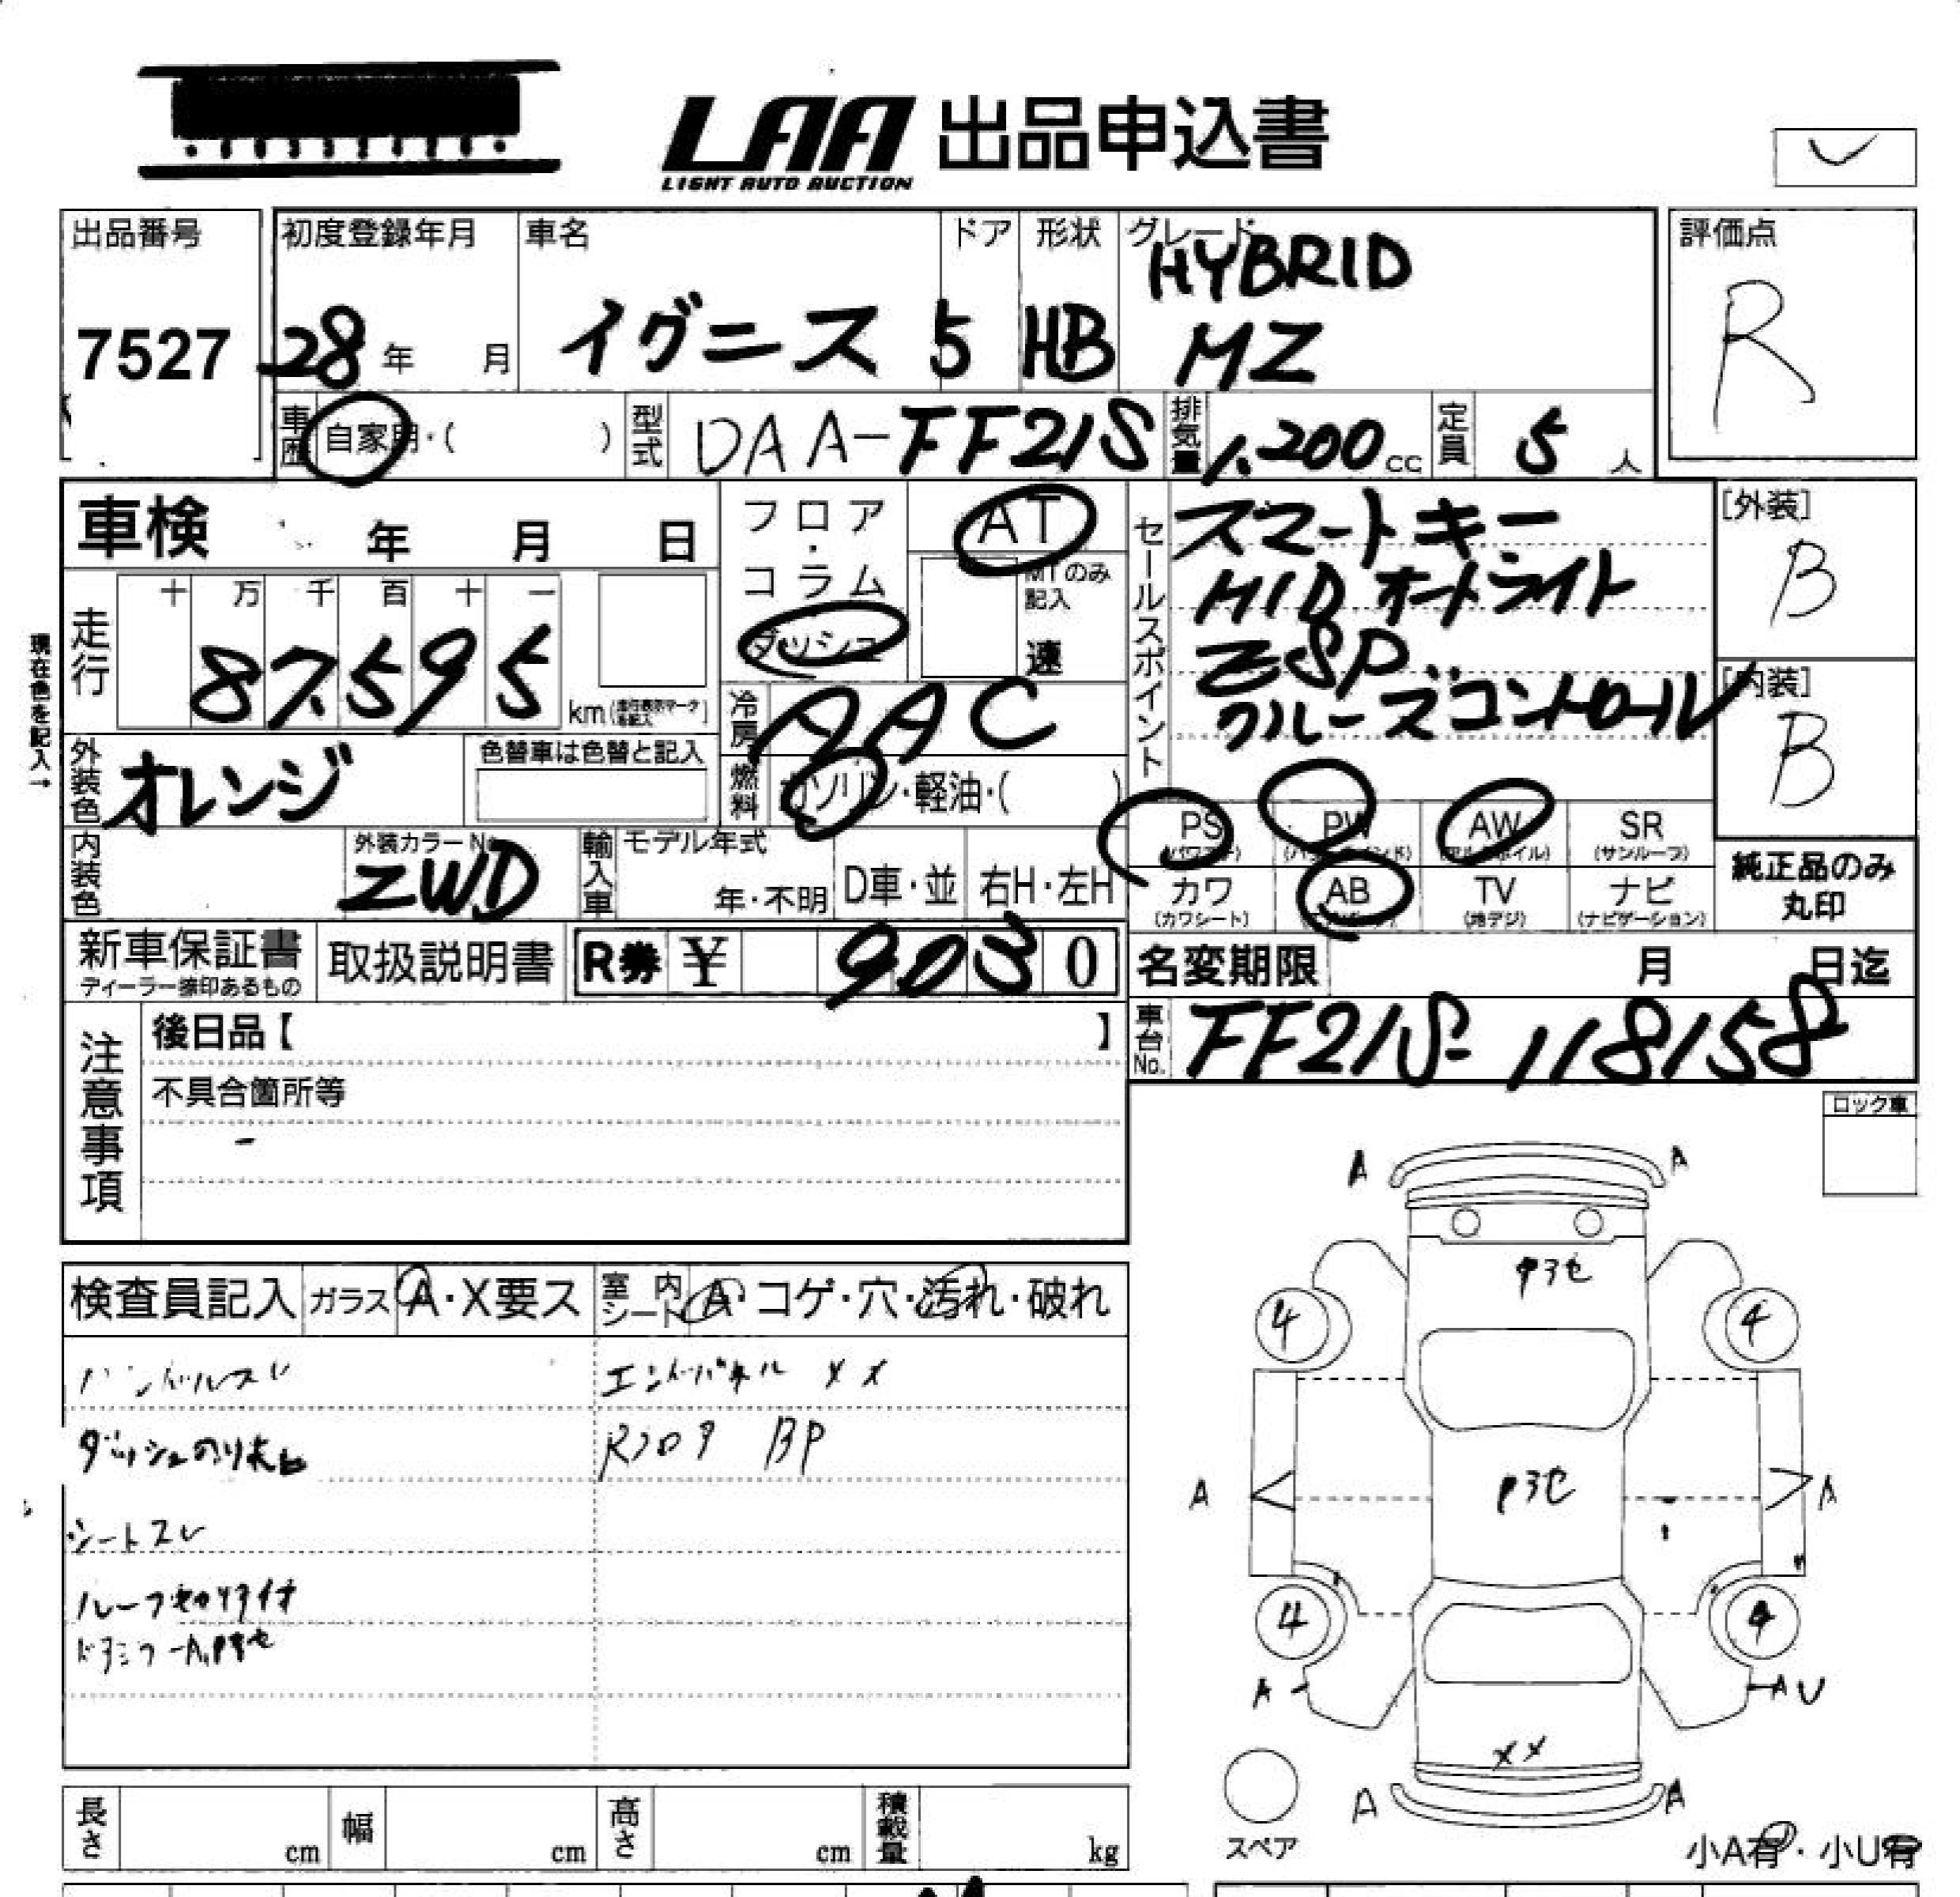 LAA 出品申込書
LIGHT AUTO AUCTION
出品番号
7527
初度登録年月
28年 月
車名
イグニス
ドア
5
形状
HB
グレード
HYBRID
MZ
評価点
R
車歴
自家用・( )
型式
DAA-FF21S
排気量
1,200cc
定員
5人
車検 年 月 日
フロア・コラム
ダッシュ
AT
MTのみ記入
速
セールスポイント
スマートキー
HID オートライト
ESP.
クルーズコントロール
[外装]
B
[内装]
B
現在色を記入→
走行
十 万 千 百 十 一
87,595
km(走行表示マークを記入)
冷房
AAC
燃料
ガソリン・軽油・( )
外装色
オレンジ
色替車は色替と記入
PS
(パワステ)
PW
(パワーウインド)
AW
(アルミホイル)
SR
(サンルーフ)
カワ
(カワシート)
AB
TV
(地デジ)
ナビ
(ナビゲーション)
純正品のみ
丸印
内装色
外装カラーNo.
ZWD
輸入車
モデル年式
年・不明
D車・並
右H・左H
新車保証書
ディーラー捺印あるもの
取扱説明書
R券 ¥ 9030
名変期限 月 日迄
注意事項
後日品【 】
不具合箇所等
車台No.
FF21S-118158
ロック車
検査員記入
ガラス
A・X要ス
室内シート
A・コゲ・穴・汚れ・破れ
ハンドルスレ
エンドパネル XX
ダッシュのり末白
Rフロア BP
シートスレ
A
A
4
4
A
A
4
4
A
AU
XX
A
A
スペア
小A有・小U有
長さ cm
幅 cm
高さ cm
積載量 kg